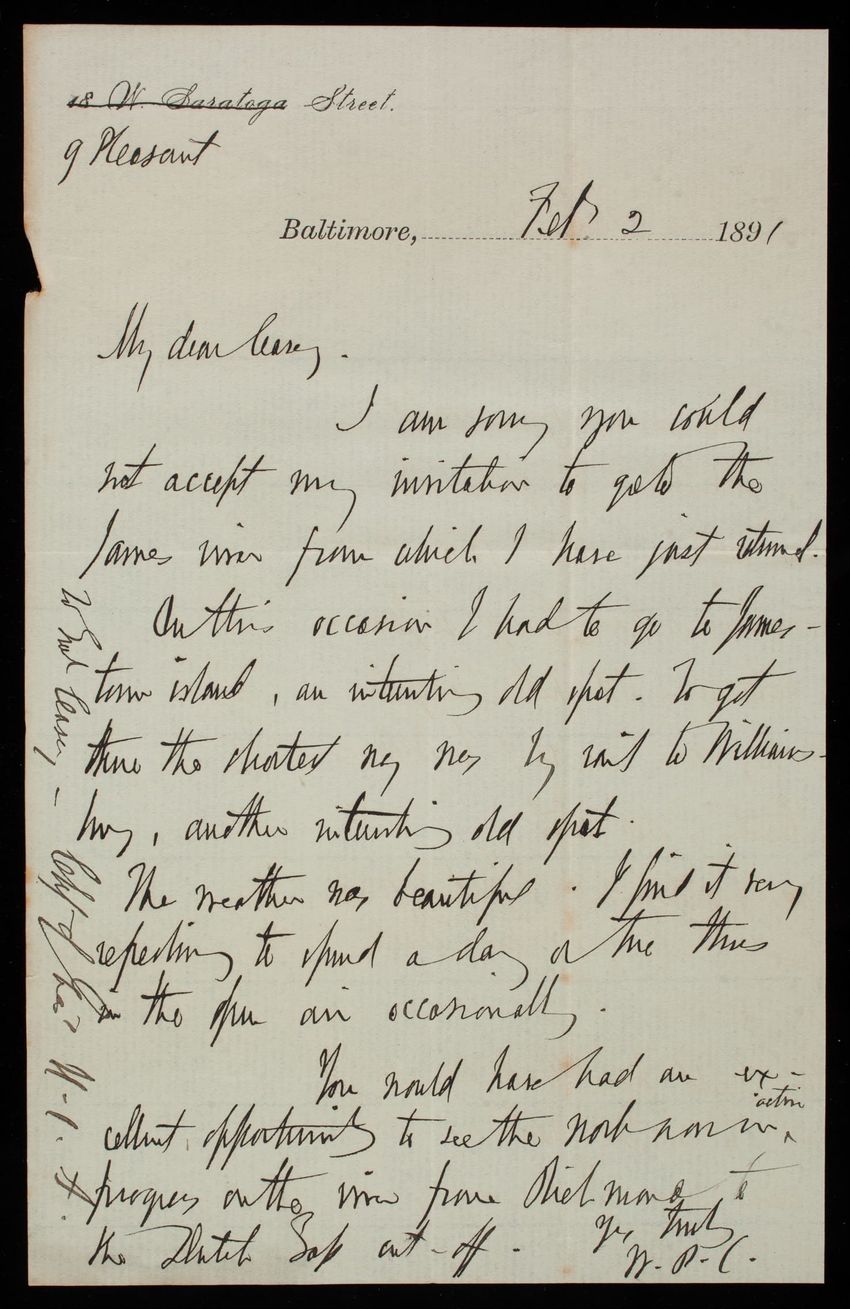 18 W. Saratoga Street.
9 Pleasant
Baltimore, Feb 2 1891
My dear Casey.
I am sorry you could
not accept my invitation to go to the
James river from which I have just returned.
On this occasion I had to go to James-
town island, an interesting old spot. To get
there the shortest way was by rail to Williams-
burg, another interesting old spot.
The weather was beautiful. I find it very
refreshing to spend a day or two thus
in the open air occasionally.
You would have had an ex-
cellent opportunity to see the work now in
active
progress on the river from Richmond to
the Dutch Gap cut-off.
Yrs truly
W. P. C.
To Genl Casey -